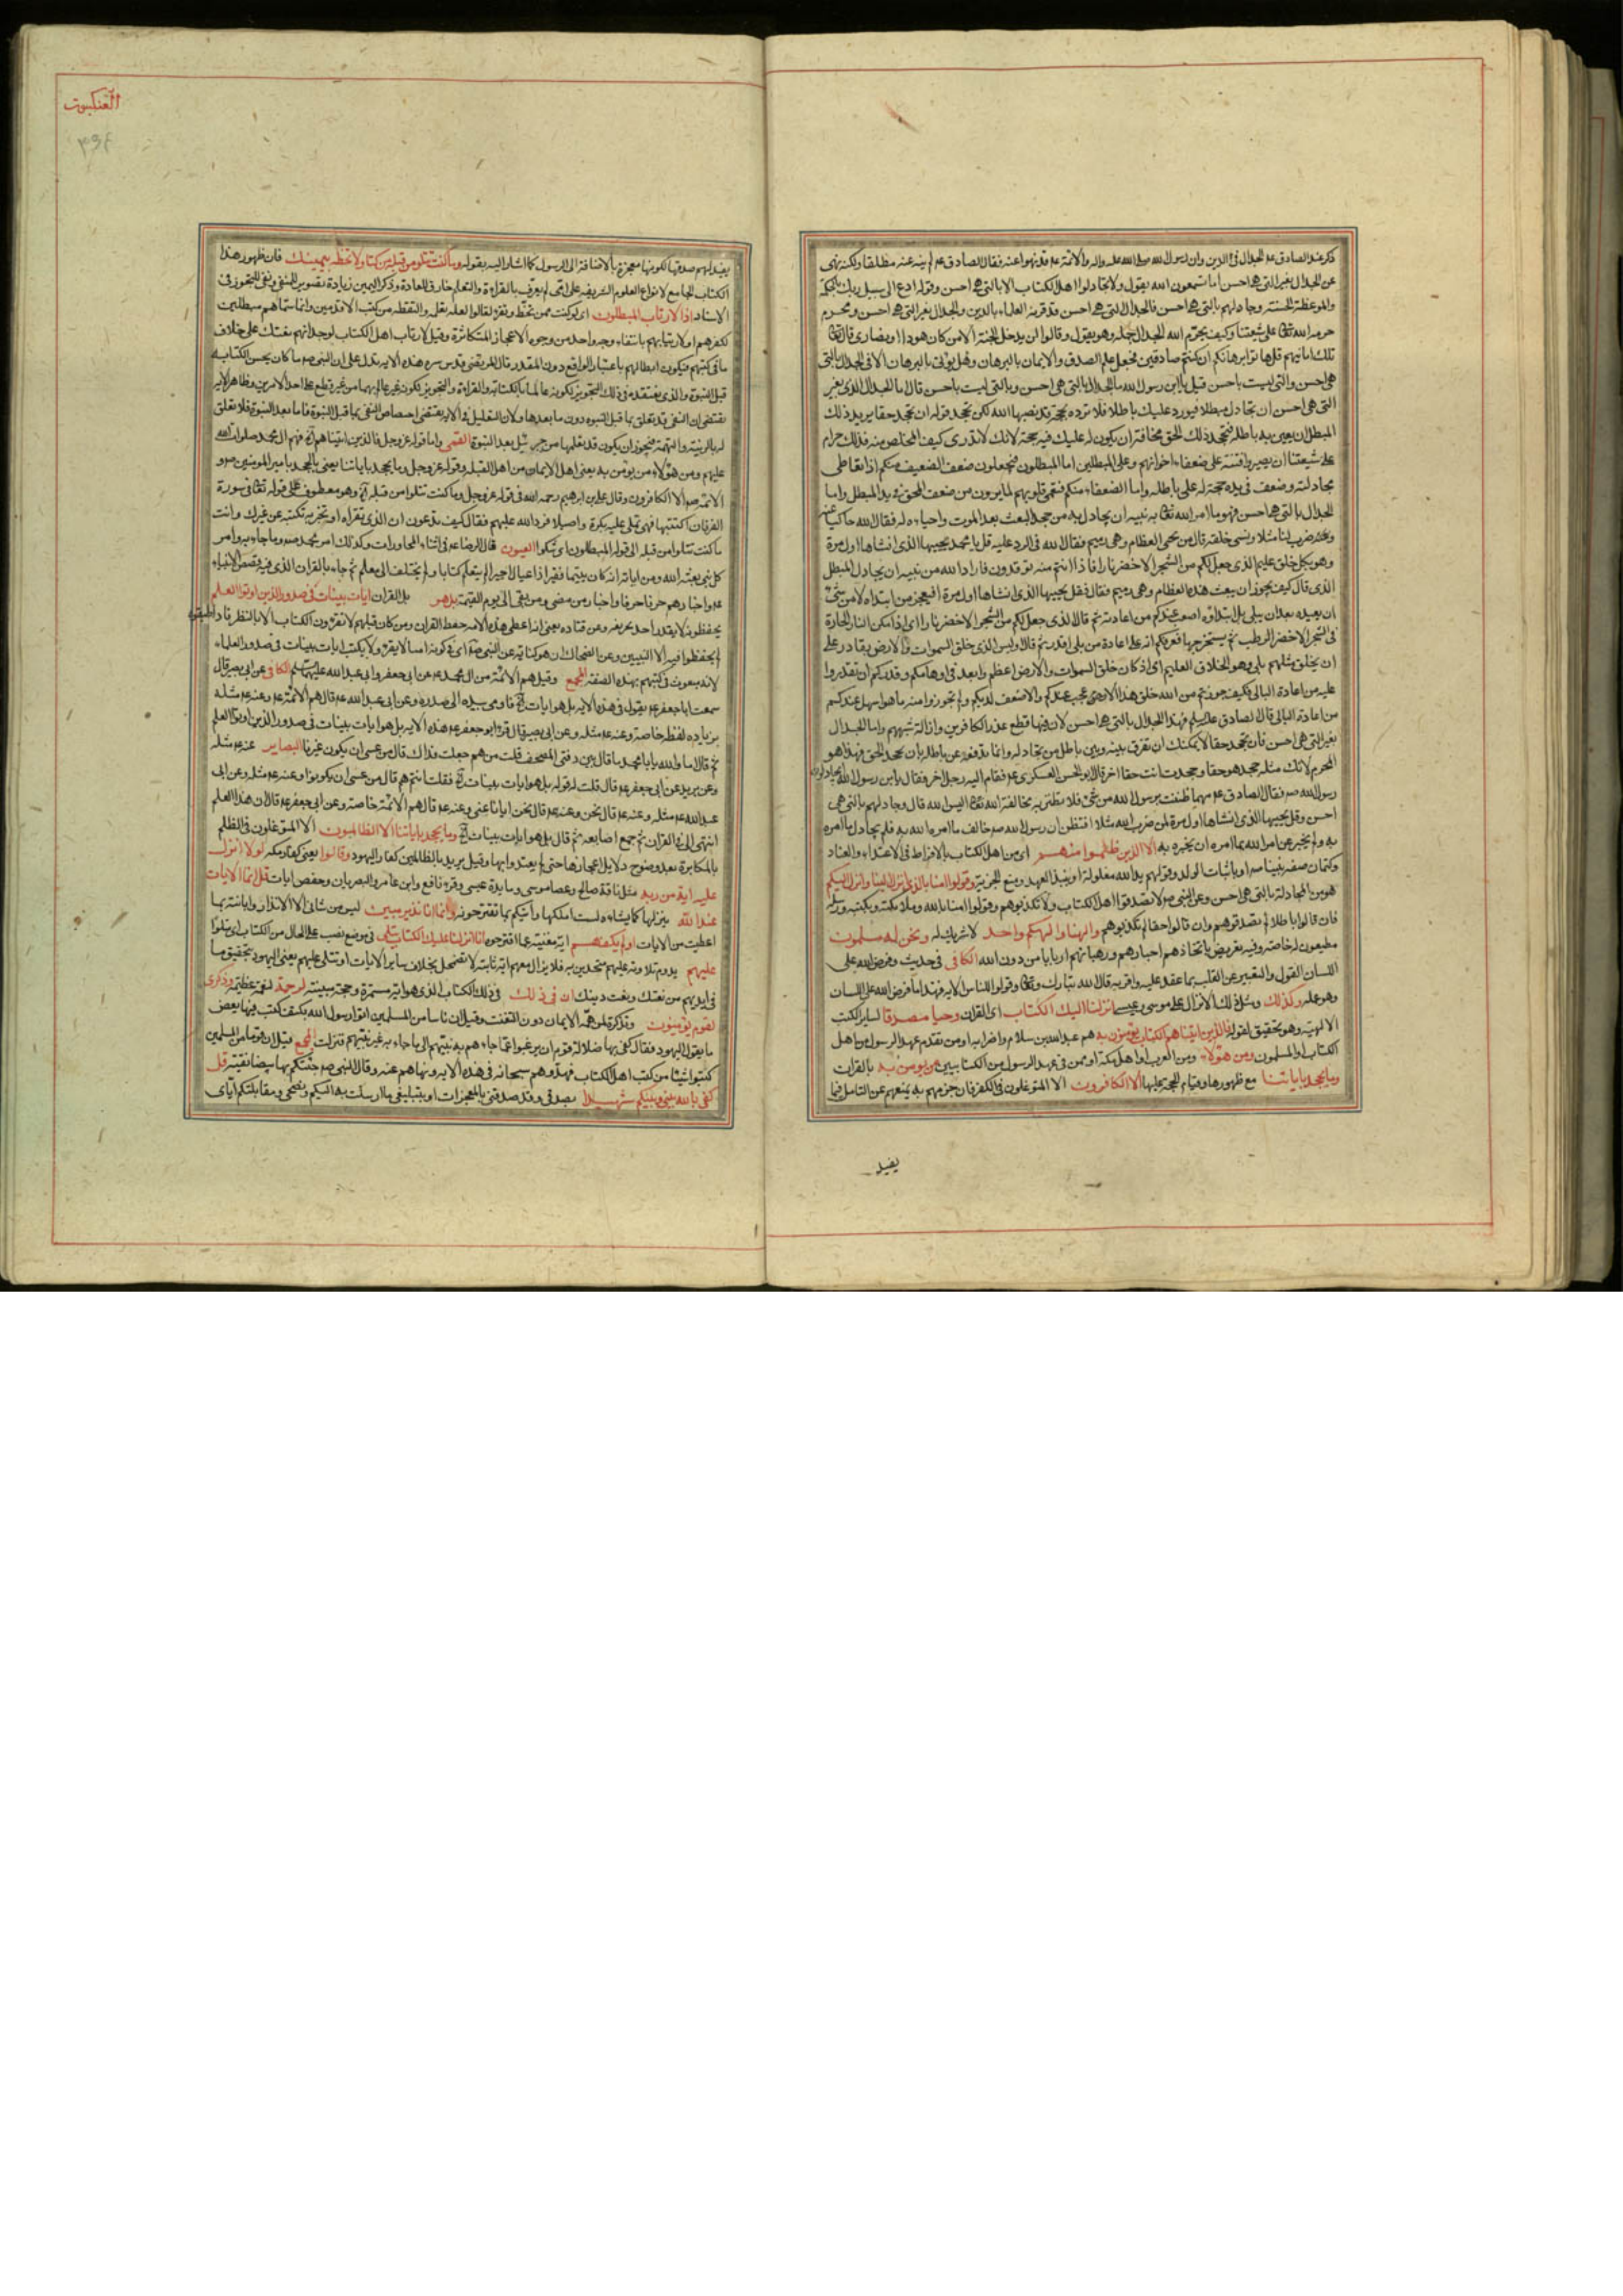 ذكر عند الصادق عه الجدال فى الدين وان رسول الله صلى الله عليه واله والائمة عه قد نهوا عنه فقال الصادق عه لم ينه عنه مطلقا ولكنه نهى
عن الجدال بغير التى هى احسن اما تسمعون الله يقول ولا تجادلوا اهل الكتاب الا بالتى هى احسن وقوله ادع الى سبيل ربك بالحكمة
والموعظة الحسنة وجادلهم بالتى هى احسن فالجدال بالتى هى احسن قد قرنه العلماء بالدين والجدال بغير التى هى احسن محرم
حرمه الله تعالى على شيعتنا وكيف يحرم الله الجدال جملة وهو يقول وقالوا لن يدخل الجنة الا من كان هودا او نصارى قال تعالى
تلك امانيهم قل هاتوا برهانكم ان كنتم صادقين فجعل علم الصدق والايمان بالبرهان وهل يؤتى بالبرهان الا فى الجدال بالتى
هى احسن والتى ليست باحسن قيل يابن رسول الله ما الجدال بالتى هى احسن وبالتى ليست باحسن قال اما الجدال الذى بغير
التى هى احسن ان تجادل مبطلا فيورد عليك باطلا فلا ترده بحجة قد نصبها الله لكن تجحد قوله او تجحد حقا يريد ذلك
المبطل ان يعين به باطله فتجحد ذلك الحق مخافة ان يكون له عليك فيه حجة لانك لا تدرى كيف المخلص منه فذلك حرام
على شيعتنا ان يصيروا فتنة على ضعفاء اخوانهم وعلى المبطلين اما المبطلون فيجعلون ضعف الضعيف منكم اذا تعاطى
مجادلته وضعف فى يده حجة له على باطله واما الضعفاء منكم فتعمى قلوبهم لما يرون من ضعف المحق فى يد المبطل واما
الجدال بالتى هى احسن فهو ما امر الله تعالى به نبيه ان يجادل به من جحد البعث بعد الموت واحياءه له فقال الله حاكيا عنه
وضرب لنا مثلا ونسى خلقه قال من يحيى العظام وهى رميم فقال الله فى الرد عليه قل يا محمد يحييها الذى انشاها اول مرة
وهو بكل خلق عليم الذى جعل لكم من الشجر الاخضر نارا فاذا انتم منه توقدون فاراد الله من نبيه ان يجادل المبطل
الذى قال كيف يجوز ان يبعث هذه العظام وهى رميم فقال فقل يحييها الذى انشاها اول مرة افيعجز من ابتداه لا من شىء
ان يعيده بعد ان يبلى بل ابتداؤه اصعب عندكم من اعادته ثم قال الذى جعل لكم من الشجر الاخضر نارا اى اذا كمن النار الحارة
فى الشجر الاخضر الرطب ثم يستخرجها فعرفكم انه على اعادة من بلى اقدر ثم قال اوليس الذى خلق السموات والارض بقادر على
ان يخلق مثلهم بلى وهو الخلاق العليم اى اذ كان خلق السموات والارض اعظم وابعد فى اوهامكم وقدركم ان تقدروا
عليه من اعادة البالى فكيف جوزتم من الله خلق هذا الاعجب عندكم والاصعب لديكم ولم تجوزوا منه ما هو اسهل عندكم
من اعادة البالى قال الصادق عليه السلام فهذا الجدال بالتى هى احسن لان فيها قطع عذر الكافرين وازالة شبههم واما الجدال
بغير التى هى احسن فان تجحد حقا لا يمكنك ان تفرق بينه وبين باطل من تجادله وانما تدفعه عن باطله بان تجحد الحق فهذا هو
المحرم لانك مثله جحد هو حقا وجحدت انت حقا اخر قال ابو الحسن العسكرى عه فقام اليه رجل اخر فقال يا ابن رسول الله افجادل
رسول الله صه فقال الصادق عه مهما ظننت برسول الله من شىء فلا تظنن به مخالفة الله تعالى اليس الله قال وجادلهم بالتى هى
احسن وقل يحييها الذى انشاها اول مرة لمن ضرب الله مثلا افتظن ان رسول الله صه خالف ما امره الله به فلم يجادل ما امره
به ولم يخبر عن امر الله بما امره ان يخبره به الا الذين ظلموا منهم اى من اهل الكتاب بالافراط فى الاعتداء والعناد
وكتمان صفة نبينا صه او باثبات الولد وقولهم يد الله مغلولة او بنبذ العهد ومنع الجزية وقولوا امنا بالذى انزل الينا وانزل اليكم
هو من المجادلة بالتى هى احسن وعن النبى صه لا تصدقوا اهل الكتاب ولا تكذبوهم وقولوا امنا بالله وملائكته وبكتبه ورسله
فان قالوا باطلا لم تصدقوهم وان قالوا حقا لم تكذبوهم والهنا والهكم واحد لا شريك له ونحن له مسلمون
مطيعون له خاصة وفيه تعريض باتخاذهم احبارهم ورهبانهم اربابا من دون الله الكافى فى حديث وفرض الله على
اللسان القول والتعبير عن القلب بما عقد عليه واقر به قال الله تبارك وتعالى وقولوا للناس الاية فهذا ما فرض الله على اللسان
وهو عمله وكذلك ومثل ذلك الانزال على موسى وعيسى انزلنا اليك الكتاب اى القران وحيا مصدقا لساير الكتب
الالهية وهو تحقيق لقوله فالذين اتيناهم الكتاب يؤمنون به هم عبد الله بن سلام واضرابه او من تقدم عهد الرسول من اهل
الكتاب او المسلمون ومن هؤلاء ومن العرب او اهل مكة او ممن فى عهد الرسول من الكتابيين من يؤمن به بالقران
وما يجحد باياتنا مع ظهورها وقيام الحجة عليها الا الكافرون الا المتوغلون فى الكفر فان جزمهم به يمنعهم عن التامل فيما
يفيد
العنكبوت
٣٩٤
يفيد لهم صدقها لكونها معجزة بالاضافة الى الرسول كما اشار اليه بقوله وما كنت تتلو من قبله من كتاب ولا تخطه بيمينك فان ظهور هذا
الكتاب الجامع لانواع العلوم الشريفة على امى لم يعرف بالقراءة والتعلم خارق للعادة وذكر اليمين زيادة تصوير للمنفى ونفى للتجوز فى
الاسناد اذا لارتاب المبطلون اى لو كنت ممن تخط وتقرء لقالوا لعله تعلمه والتقطه من كتب الاقدمين وانما سماهم مبطلين
لكفرهم او لارتيابهم بانتفاء وجه واحد من وجوه الاعجاز المتكاثرة وقيل لارتاب اهل الكتاب لوجدانهم نعتك على خلاف
ما فى كتبهم فيكون ابطالهم باعتبار الواقع دون المقدر قال المرتضى قدس سره هذه الاية تدل على ان النبى صه ما كان يحسن الكتابة
قبل النبوة والذى نعتقده فى ذلك التجويز لكونه عالما بالكتابة والقراءة والتجويز لكونه غير عالم بهما من غير قطع على احد الامرين وظاهر الاية
تقتضى ان النفى قد تعلق بما قبل النبوة دون ما بعدها ولان التعليل فى الاية يقتضى اختصاص النفى بما قبل النبوة فاما بعد النبوة فلا تعلق
له بالريبة والتهمة فيجوز ان يكون قد تعلمها من جبرئيل بعد النبوة القمى واما قوله عز وجل فالذين اتيناهم آه فهم ال محمد صلوات الله
عليهم ومن هؤلاء من يؤمن به يعنى اهل الايمان من اهل القبلة وقوله عز وجل وما يجحد باياتنا يعنى ما يجحد بامير المؤمنين صه و
الائمة صه الا الكافرون وقال على بن ابراهيم رحمه الله فى قوله عز وجل وما كنت تتلوا من قبله آه وهو معطوف على قوله تعالى فى سورة
الفرقان اكتتبها فهى تملى عليه بكرة واصيلا فرد الله عليهم فقال كيف تدعون ان الذى تقراه او تخبر به تكتبه عن غيرك وانت
ما كنت تتلوا من قبله الى قوله المبطلون اى شكوا العيون قال الرضا عه فى اثناء المحاورات وكذلك امر محمد صه وما جاء به وامر
كل نبى بعثه الله ومن اياته انه كان يتيما فقيرا راعيا اجيرا لم يتعلم كتابا ولم يختلف الى معلم ثم جاء بالقران الذى فيه قصص الانبياء
عه واخبارهم حرفا حرفا واخبار من مضى ومن بقى الى يوم القيمة بل هو بل القران ايات بينات فى صدور الذين اوتوا العلم
يحفظونه لا يقدر احد تحريفه وعن قتادة يعنى انه اعطى هذه الامة حفظ القران ومن كان قبلهم لا تقرؤن الكتاب الا بالنظر فاذا طبقوه
لم يحفظوا فيه الا النبيين وعن الضحاك ان هو كناية عن النبى صه اى فى كونه اميا لا يقرء ولا يكتب ايات بينات فى صدور العلماء
لانه مبعوث فى كتبهم بهذه الصفة المجمع وقيل هم الائمة من ال محمد عه عن ابى جعفر وابى عبد الله عليهما السلم الكافى عن ابى بصير قال
سمعت ابا جعفر عه يقول فى هذه الاية بل هو ايات آه فاومى بيده الى صدره وعن ابى عبد الله عه قال هم الائمة عه وعنه عه مثله
بزيادة لفظه خاصة وعنه عه مثله وعن ابى بصير قال قرء ابو جعفر عه هذه الاية بل هو ايات بينات فى صدور الذين اوتوا العلم
ثم قال اما والله يا با محمد ما قال بين دفتى المصحف قلت من هم جعلت فداك قال من عسى ان يكون غيرنا البصاير عنه عه مثله
وعن بريد عن ابى جعفر عه قال قلت له قوله بل هو ايات بينات آه فقلت انتم هم قال من عسى ان يكونوا وعنه عه مثله وعن ابى
عبد الله عه مثله وعنه عه قال نحن وعنه عه قال نحن ايانا عنى وعنه عه قال هم الائمة خاصة وعن ابى جعفر عه قال ان هذا العلم
انتهى الى فى القران ثم جمع اصابعه ثم قال بل هو ايات بينات آه وما يجحد باياتنا الا الظالمون الا المتوغلون فى الظلم
بالمكابرة بعد وضوح دلايل اعجازها حتى لم يعتدوا بها وقيل يريد بالظالمين كفار اليهود وقالوا يعنى كفار مكة لولا انزل
عليه اية من ربه مثل ناقة صالح وعصا موسى ومايدة عيسى وقرء نافع وابن عامر والبصريان وحفص ايات قل انما الايات
عند الله ينزلها كما يشاء لست املكها واتيكم بما تقترحونه وانما انا نذير مبين ليس من شانى الا الانذار وابانته بما
اعطيت من الايات اولم يكفهم اية مغنية عما اقترحوه انا انزلنا عليك الكتاب يتلى فى موضع نصب على الحال من الكتاب اى متلوا
عليهم يدوم تلاوته عليهم متحدين به فلا يزال معهم اية ثابتة لا تضمحل بخلاف ساير الايات او تتلى عليهم يعنى اليهود بتحقيق ما
فى ايديهم من نعتك ونعت دينك ان فى ذلك فى ذلك الكتاب الذى هو اية مستمرة وحجة مبينة لرحمة لنعمة عظيمة وذكرى
لقوم يؤمنون وتذكرة لمن همه الايمان دون التعنت وقيل ان ناسا من المسلمين اتوا رسول الله بكتف كتب فيها بعض
ما يقول اليهود فقال كفى بها ضلالة قوم ان يرغبوا عما جاءهم به نبيهم الى ما جاء به غير نبيهم فنزلت المجمع قيل ان قوما من المسلمين
كتبوا شيئا من كتب اهل الكتاب فهددهم سبحانه فى هذه الاية ونهاهم عنه وقال النبى صه جئتكم بها بيضاء نقية قل
كفى بالله بينى وبينكم شهيدا بصدقى وقد صدقنى بالمعجزات او بتبليغى ما ارسلت به اليكم ونصحى ومقابلتكم اياى